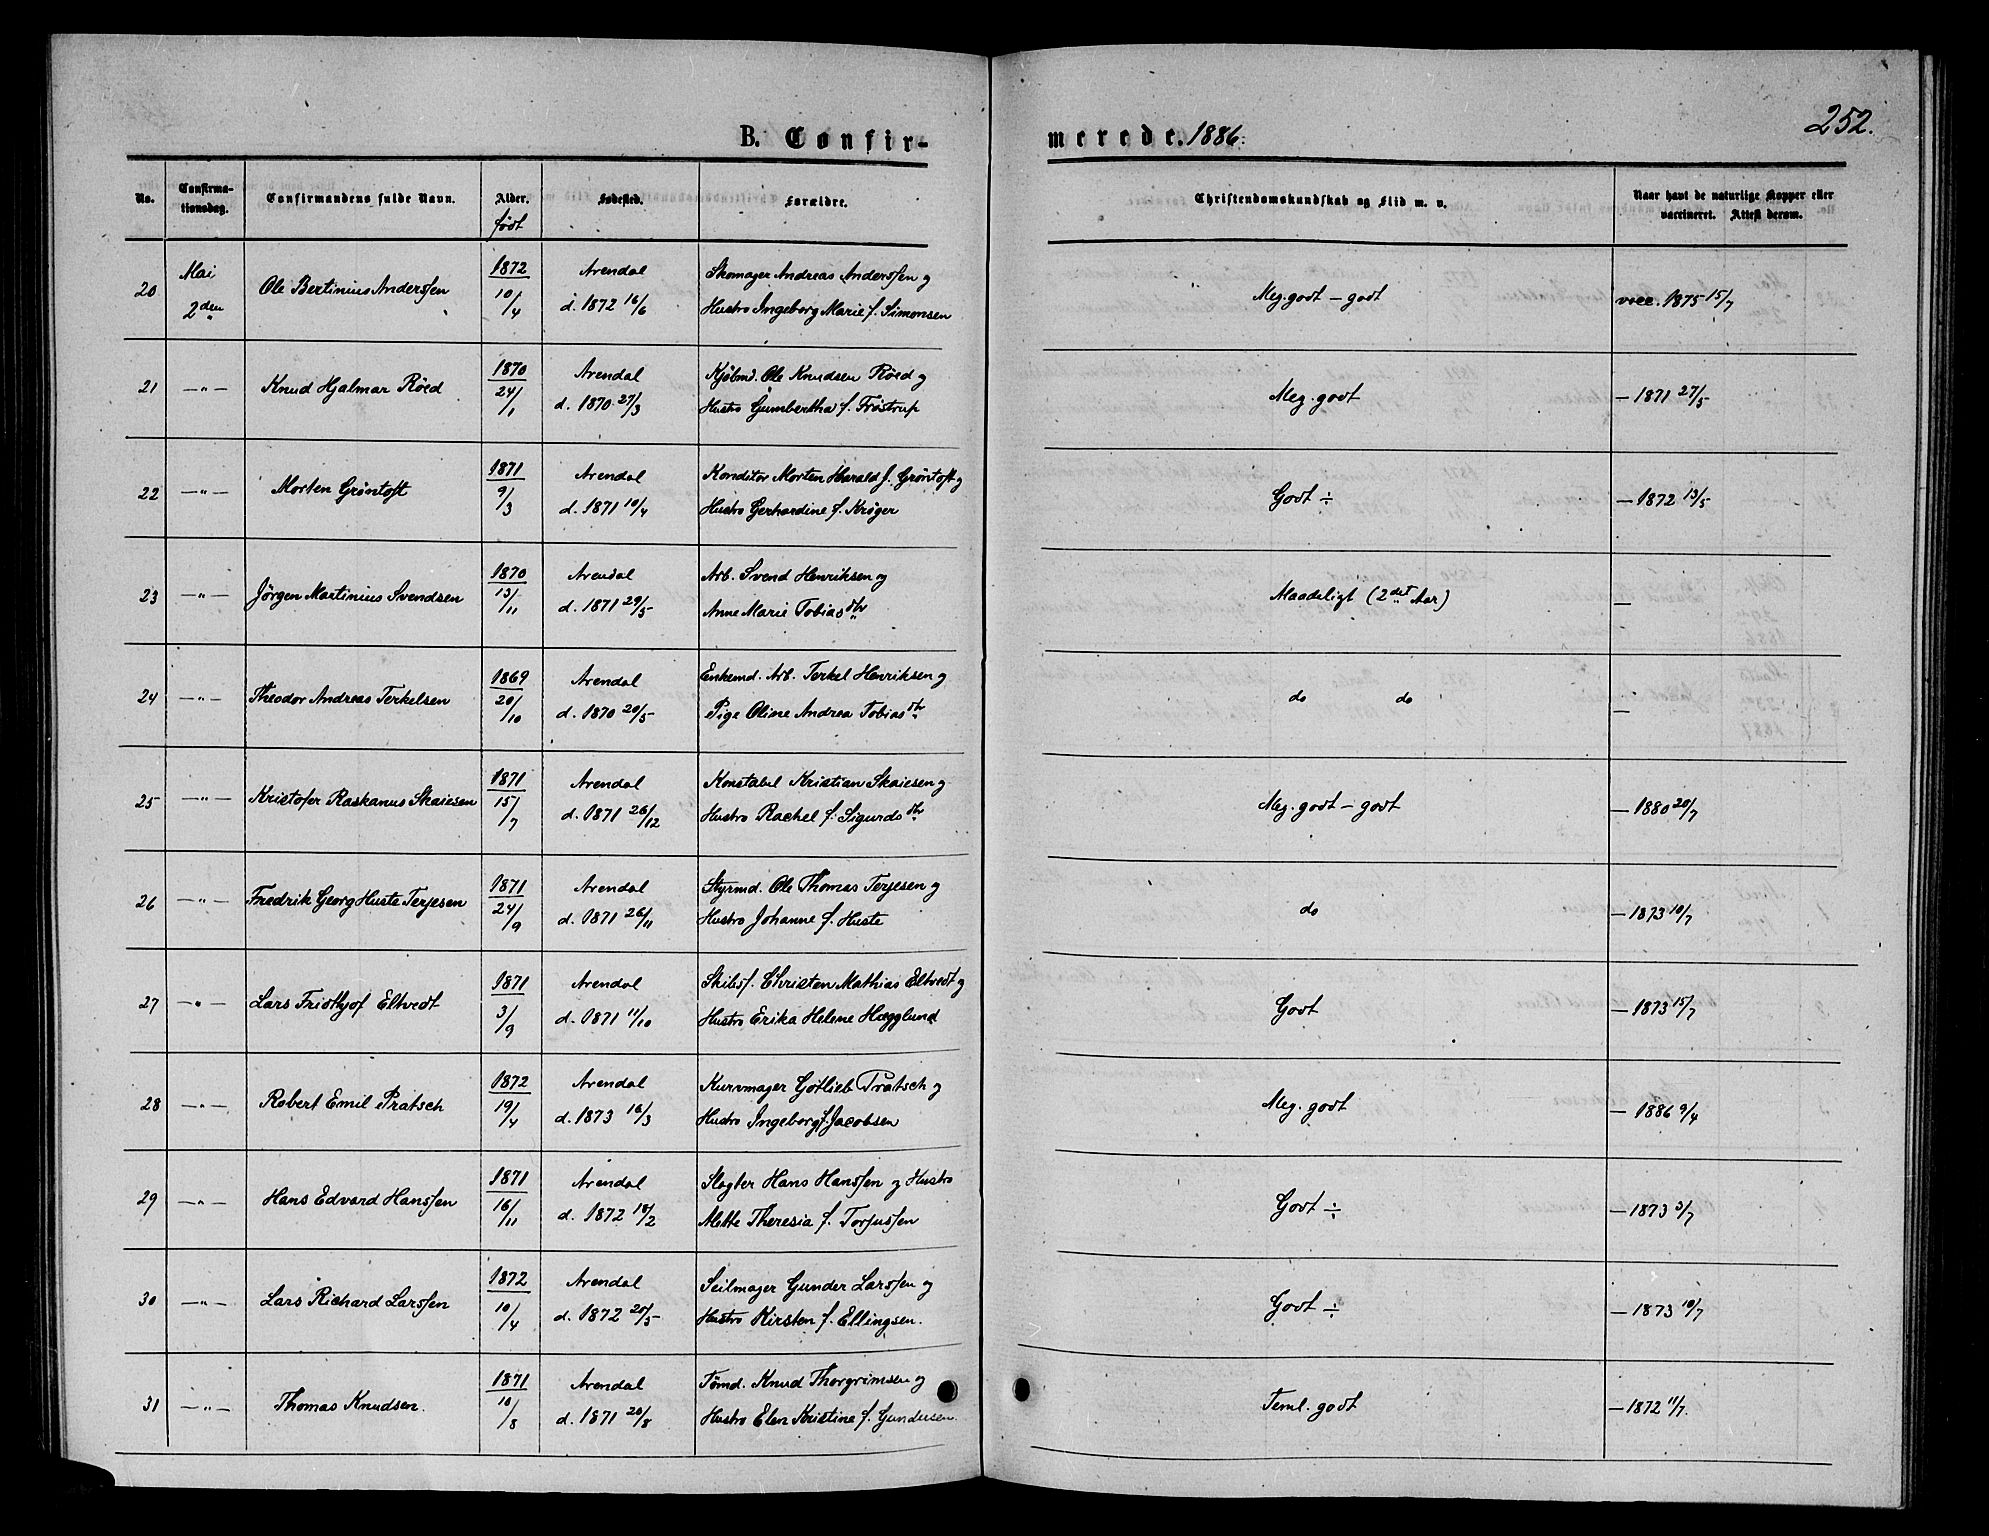 252.
B. Confir- merede. 1886.
No. Confirma-tionsdag. Confirmandens fulde Navn. Alder. født Fødested. Forældre. Christendomskundskab og Flid m. v. Naar havt de naturlige Kopper eller vaccineret. Attest derom.
20 Mai 2den Ole Bertinius Anderssen 1872 10/4 Arendal d. 1872 16/6 Skomager Andreas Anderssen og Hustro Ingeborg Marie f. Simonsen Meg. godt - godt vacc. 1875 15/7
21 —"— Knud Hjalmar Röed 1870 24/1 Arendal d. 1870 27/3 Kjöbmd. Ole Knudsen Röed og Hustro Gumbertha f. Fröstrup Meg. godt — 1871 27/5
22 —"— Morten Gröntoft 1871 9/3 Arendal d. 1871 10/4 Konditor Morten Harald J. Gröntoft og Hustro Gerhardine f. Kröger Godt ÷ — 1872 13/5
23 —"— Jörgen Martinius Svendsen 1870 13/11 Arendal d. 1871 29/5 Arb. Svend Henriksen og Anne Marie Tobiasdtr Maadeligt (2det Aar) —
24 —"— Theodor Andreas Terkelsen 1869 20/10 Arendal d. 1870 20/5 Enkemd. Arb. Terkel Henriksen og Pige Oline Andrea Tobiasdtr do do —
25 —"— Kristofer Raskanus Skaiesen 1871 15/7 Arendal d. 1871 26/12 Konstabel Kristian Skaiesen og Hustro Rachel f. Sigurdsdtr Meg. godt - godt — 1880 20/7
26 —"— Fredrik Georg Huste Terjesen 1871 24/9 Arendal d. 1871 26/11 Styrmd. Ole Thomas Terjesen og Hustro Johanne f. Huste do — 1873 10/7
27 —"— Lars Fridthjof Eltvedt 1871 3/9 Arendal d. 1871 11/10 Skibsf. Christen Mathias Eltvedt og Hustro Erika Helene Hægglund Godt — 1873 15/7
28 —"— Robert Emil Pratsch 1872 19/4 Arendal d. 1873 16/3 Kurvmager Gotlieb Pratsch og Hustro Ingeborg f. Jacobsen Meg. godt — 1886 9/4
29 —"— Hans Edvard Hanssen 1871 16/11 Arendal d. 1872 18/2 Slagter Hans Hanssen og Hustro Mette Theresia f. Torjussen Godt ÷ — 1873 3/7
30 —"— Lars Richard Larssen 1872 10/4 Arendal d. 1872 20/5 Seilmager Gunder Larssen og Hustro Kirsten f. Ellingsen. Godt ÷ — 1873 10/7
31 —"— Thomas Knudsen. 1871 10/8 Arendal d. 1871 20/8 Tömd. Knud Thorgrimsen og Hustro Elen Kristine f. Gundersen Teml. godt — 1872 11/7.